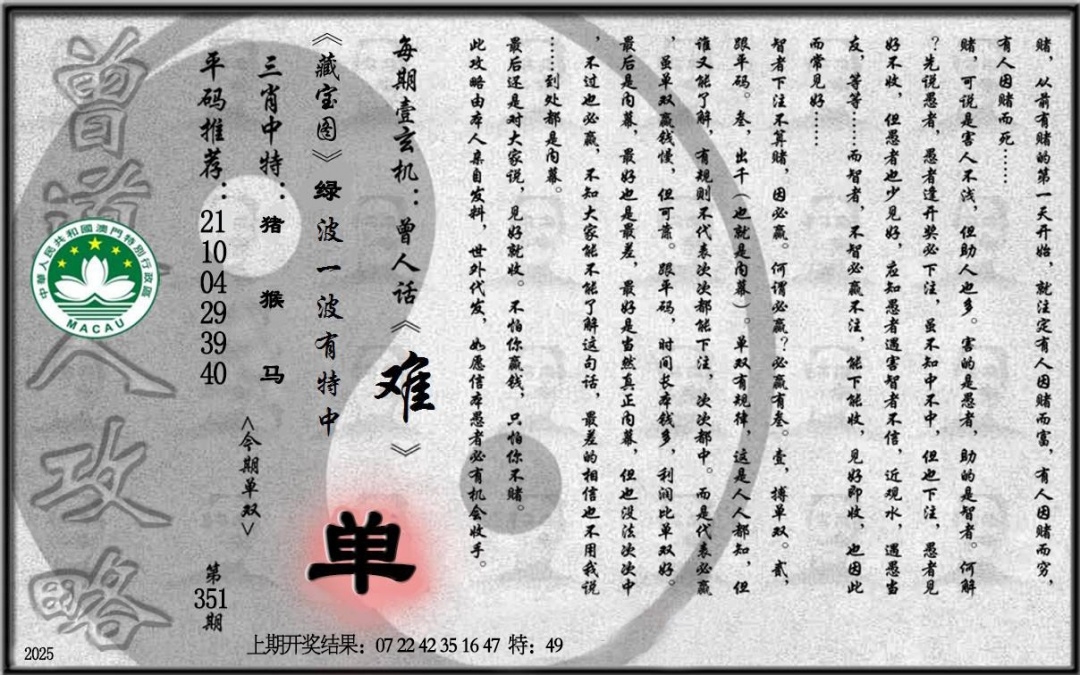 赌，从前有赌的第一天开始，就注定有人因赌而富，有人因赌而穷，
有人因赌而死……
赌，可说是害人不浅，但助人也多。害的是愚者，助的是智者。何解
？先说愚者，愚者逢开奖必下注，虽不知中不中，但也下注，愚者见
好不收，但愚者也少见好，应知愚者遇害智者不信，近观水，遇愚当
友，等等……而智者，不智必赢不注，能下能收，见好即收，也因此
而常见好……
智者下注不算赌，因必赢。何谓必赢？必赢有叁。壹，搏单双。贰，
跟单码。叁，出千（也就是内幕）。单双有规律，这是人人都知，但
谁又能了解，有规则不代表次次都能下注，次次都中。而是代表必赢
，虽单双赢钱慢，但可靠。跟单码，时间长本钱多，利润比单双好。
最后是内幕，最好也是最差，最好是当然真正内幕，但也没法次次中
，不过也必赢，不知大家能不能了解这句话，最差的相信也不用我说
……到处都是内幕。
最后还是对大家说，见好就收。不怕你赢钱，只怕你不赌。
此攻略由本人亲自发料，世外代发，如愿信本愚者必有机会收手。
每期壹玄机：曾人话《难》
《藏宝图》绿波一波有特中
单
三肖中特：猪猴马
<今期单双>
平码推荐：21 10 04 29 39 40
第351期
曾道人攻略
中華人民共和國澳門特別行政區
MACAU
2025
上期开奖结果：07 22 42 35 16 47 特：49